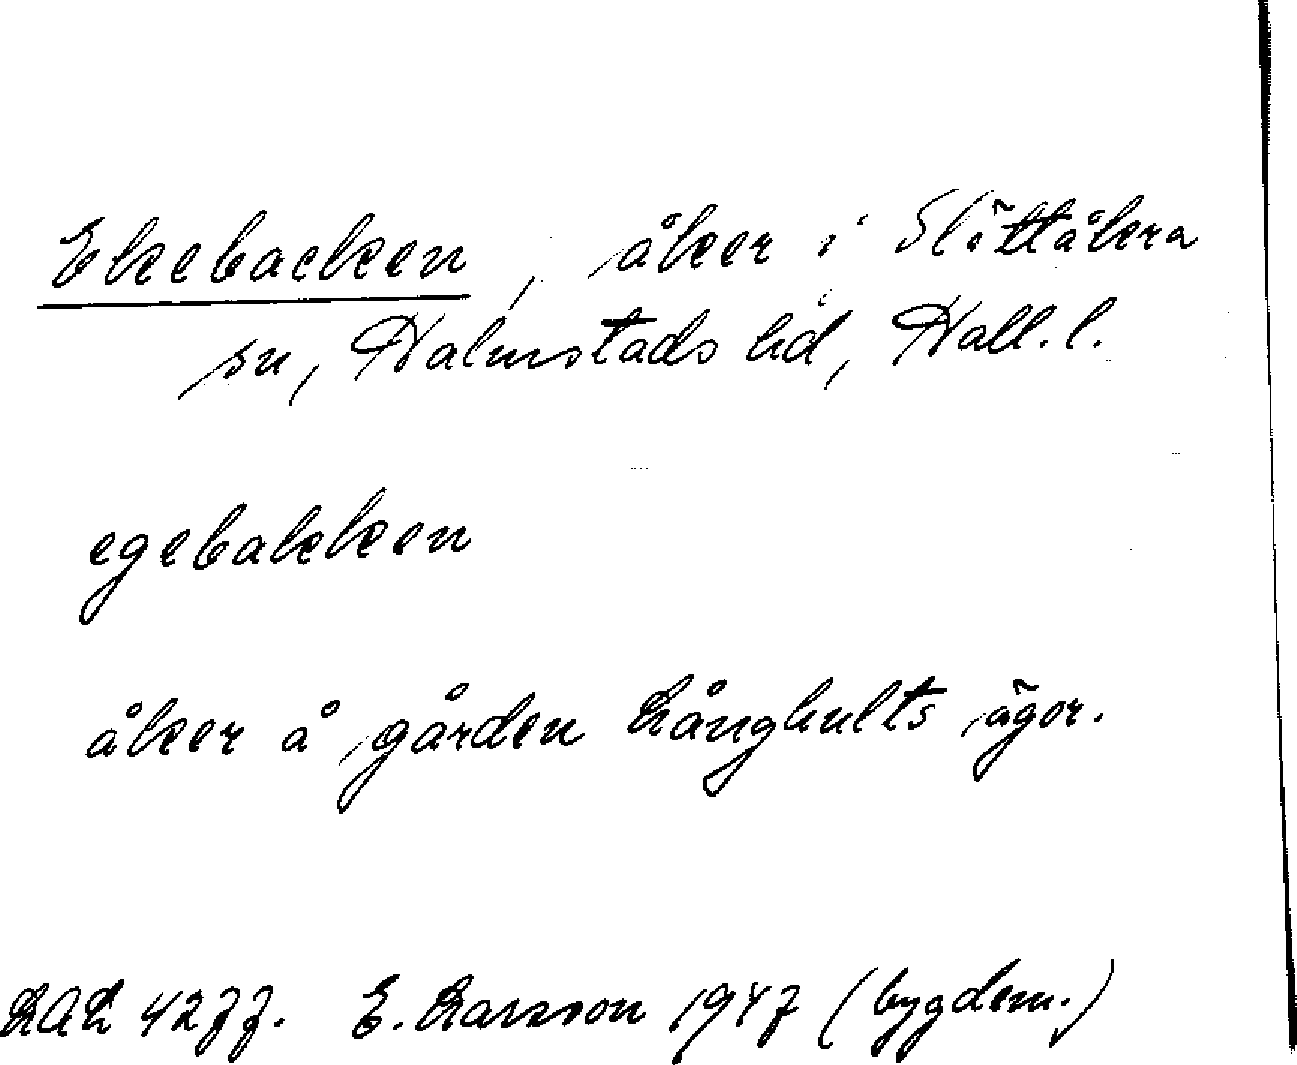 Ekebacken, åker i Slättåkra
sn, Halmstads hd, Hall. l.
egebakken
åker å gården Långhults ägor.
LAL 4277. E. Larsson 1947 (bygdem.)